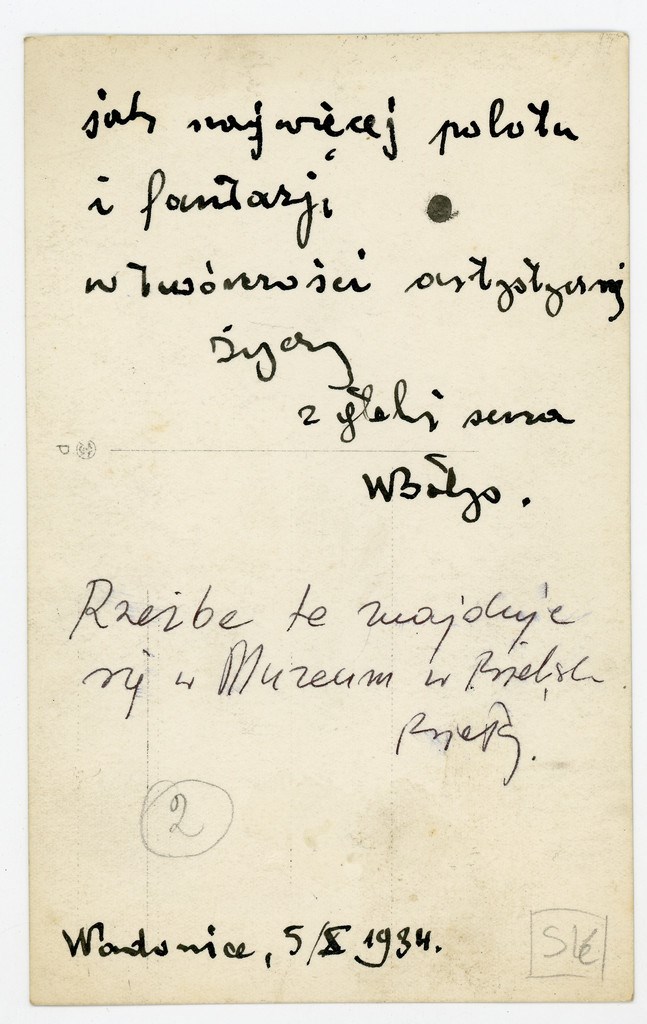 jak najwięcej polotu
i fantazji
w twórczości artystycznej
życzy
z głębi serca
WBałys.
Rzeźbe te znajduje
się w Muzeum w Bielsk
Białej.
2
Wadowice, 5/X 1934.